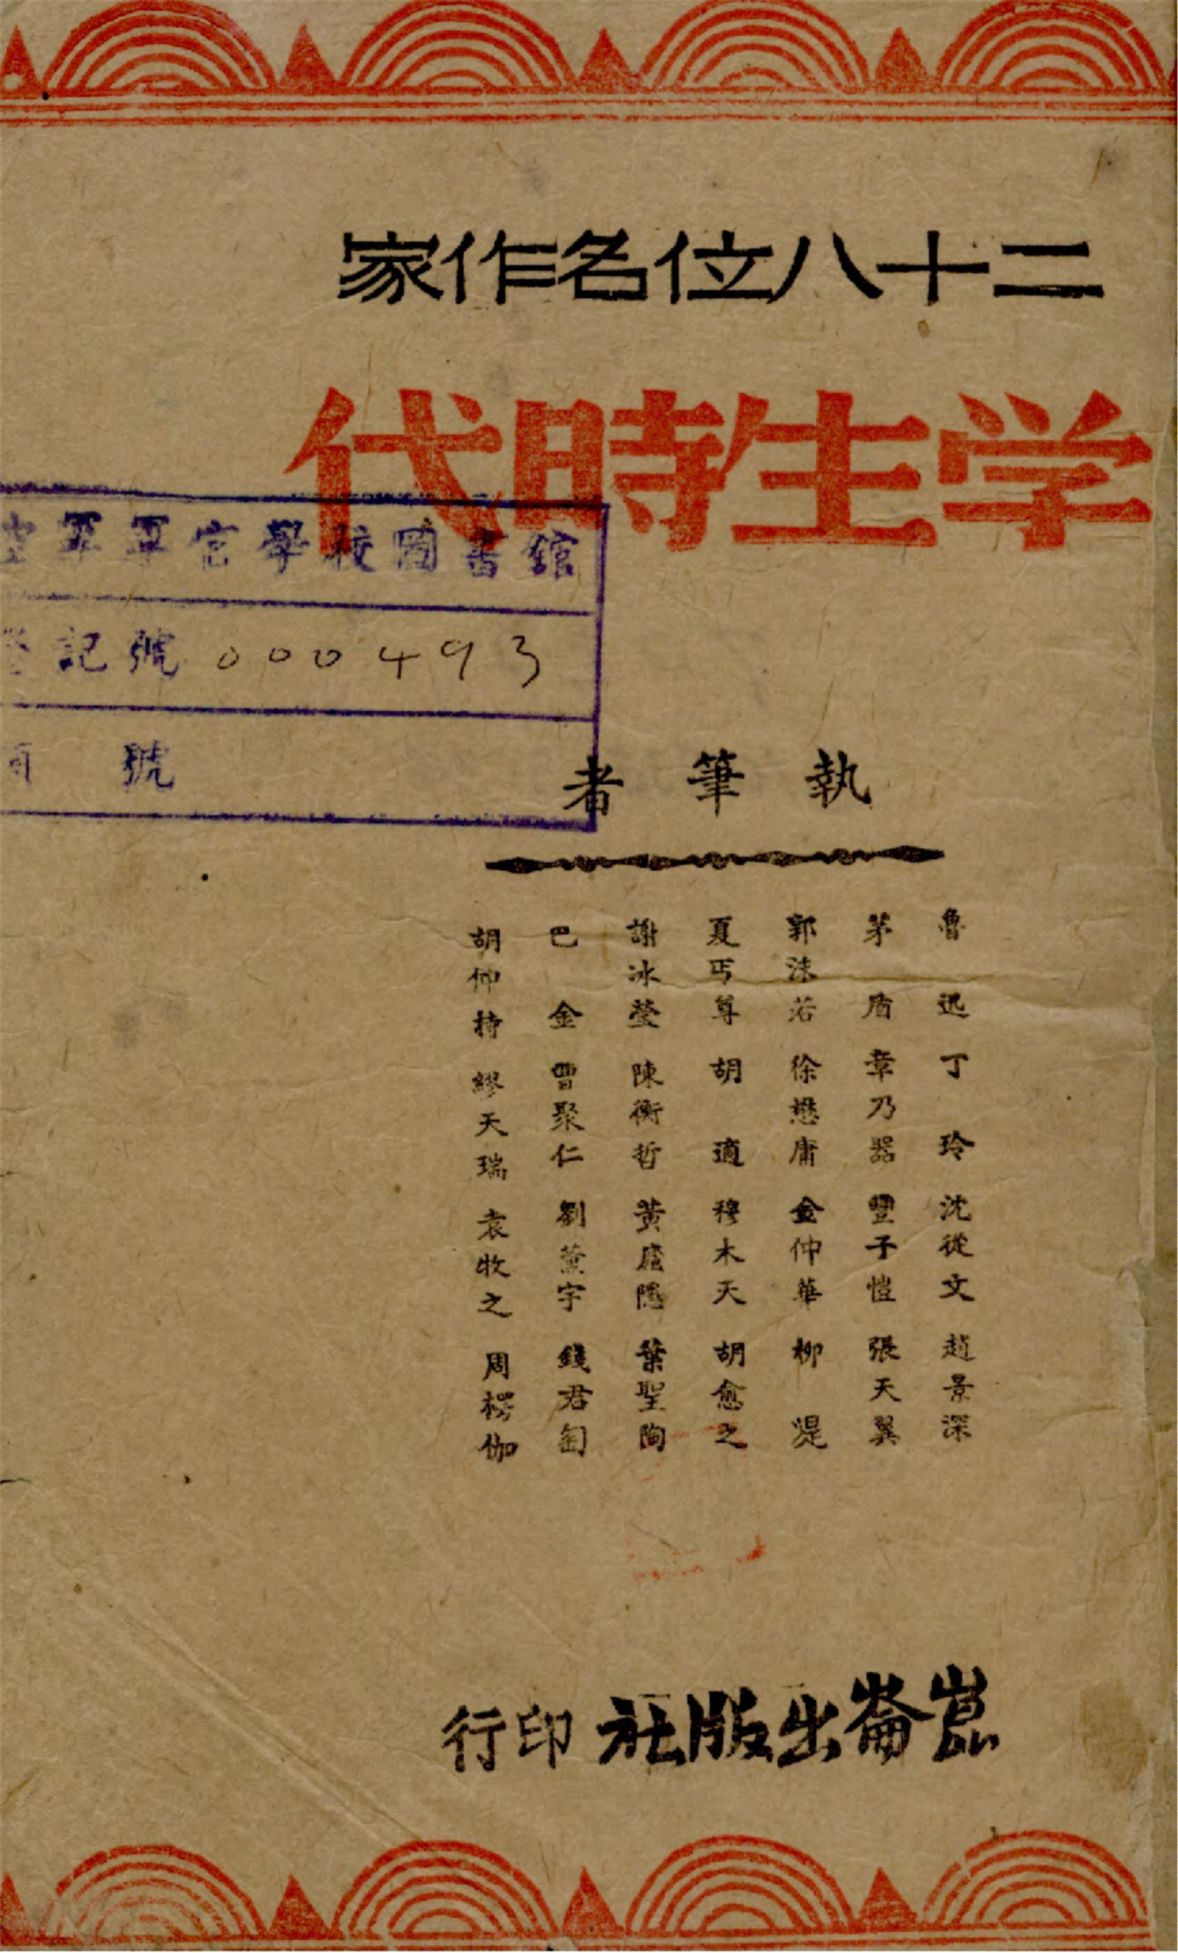 二十八位名作家
学生時代
空軍軍官學校圖書館
登記號 000493
類 號
執筆者
魯迅 丁玲 沈從文 趙景深
茅盾 章乃器 豐子愷 張天翼
郭沫若 徐懋庸 金仲華 柳湜
夏丏尊 胡適 穆木天 胡愈之
謝冰瑩 陳衡哲 黃廬隱 葉聖陶
巴金 曹聚仁 劉薰宇 錢君匋
胡仲持 繆天瑞 袁牧之 周楞伽
崑崙出版社印行